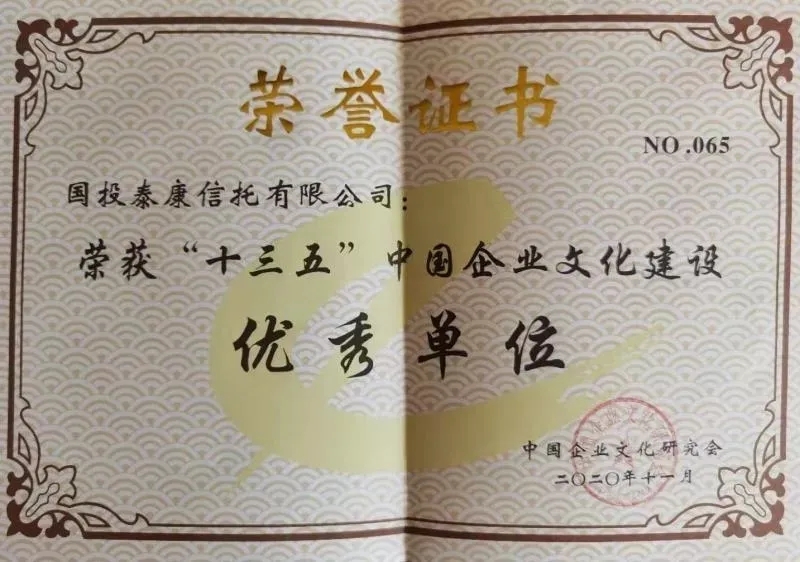 荣誉证书
NO.065
国投泰康信托有限公司：
荣获“十三五”中国企业文化建设
优秀单位
中国企业文化研究会
二〇二〇年十一月